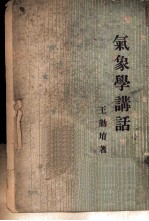 氣象學講話
王勤堉著